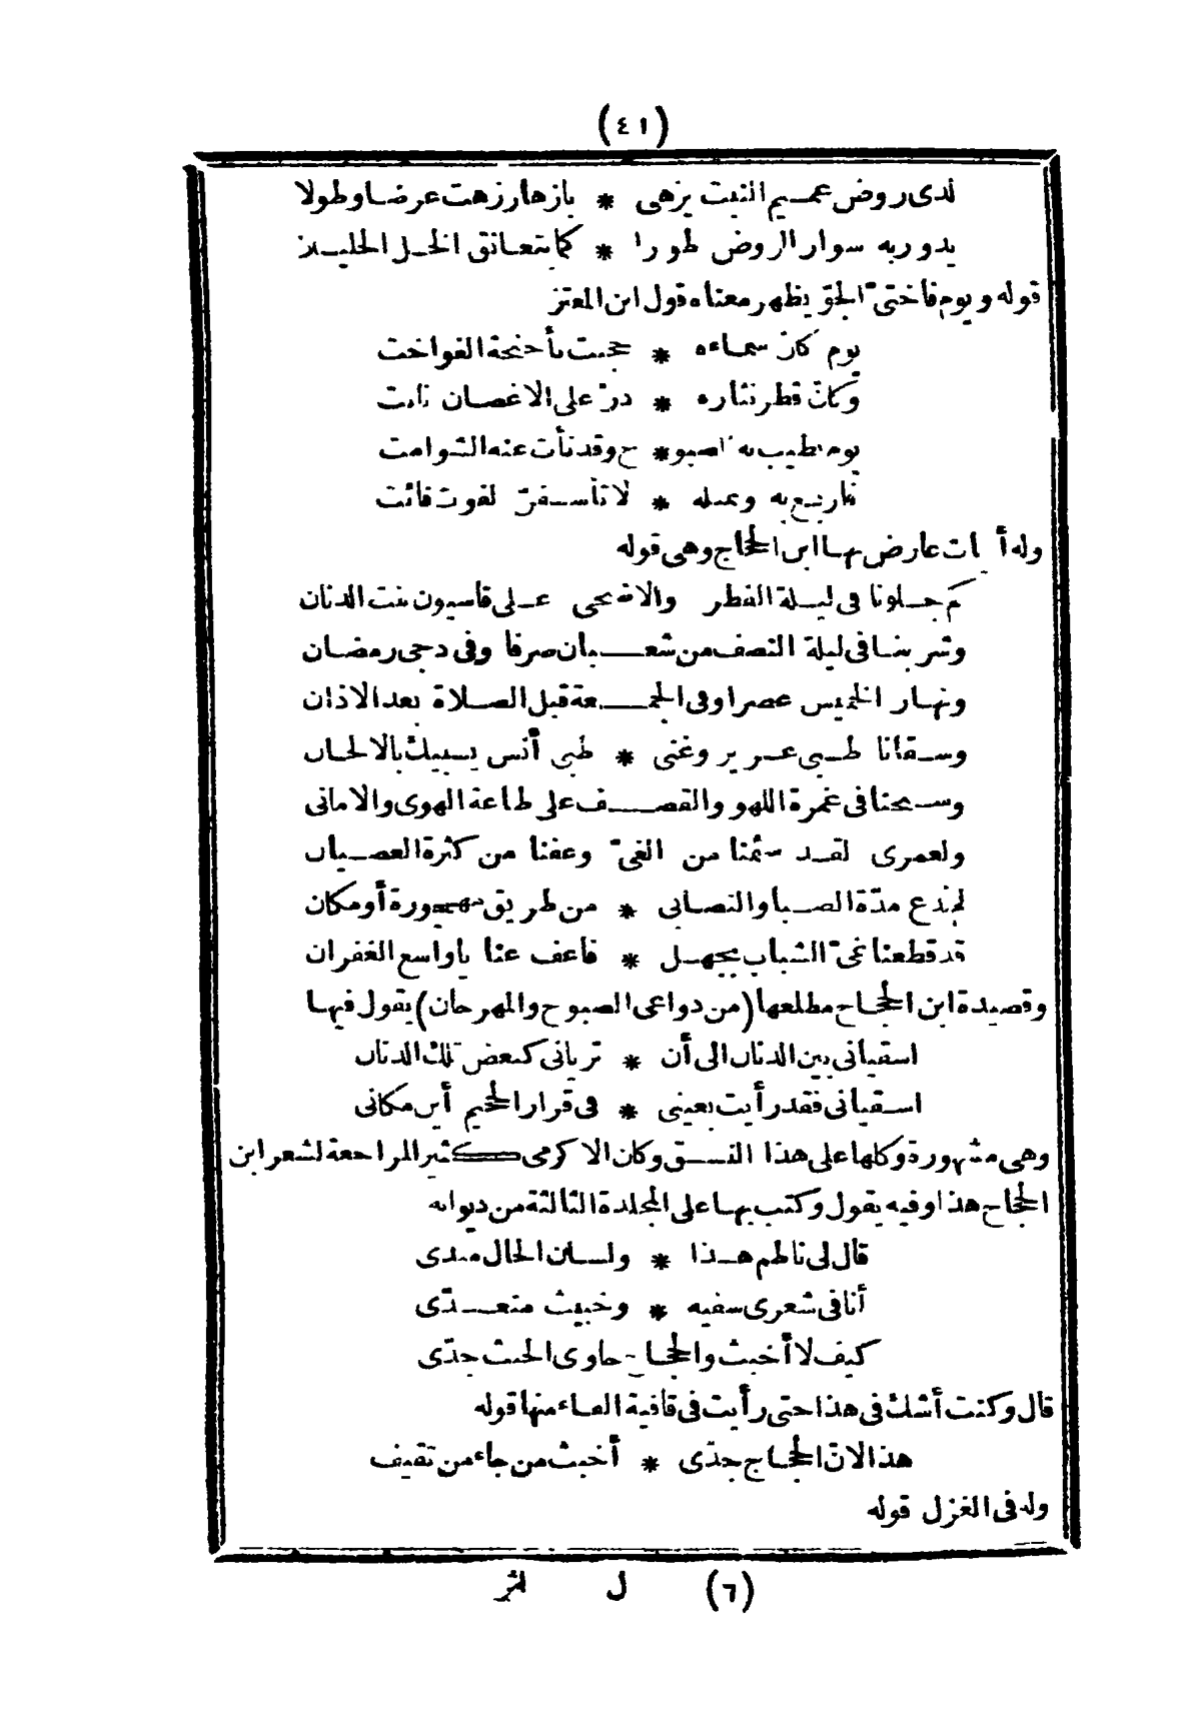 (٤١)
لدى روض عميم النبت يزهى * بازهار زهت عرضا وطولا
يدور به سوار الروض طورا * كما يتعانق الخل الخليلا
قوله ويوم فاختىّ الجوّ يظهر معناه قول ابن المعتز
يوم كأن سماءه * حجبت بأجنحة الفواخت
وكانّ قطر نثاره * درّ على الاغصان نابت
يوم يطيب به الصبو * ح وقد نأت عنه الشوامت
فاربع به وبمثله * لا تأسفنّ لفوت فائت
وله أبيات عارض بها ابن الحجاج وهى قوله
كم جلونا فى ليلة الفطر والاضحى على قاسيون بنت الدنان
وشربنا فى ليلة النصف من شعبان صرفا وفى دجى رمضان
ونهار الخميس عصرا وفى الجمعة قبل الصلاة بعد الاذان
وسقانا ظبى غرير وغنى * ظبى أنس يسبيك بالالحان
وسبحنا فى غمرة اللهو والقصف على طاعة الهوى والامانى
ولعمرى لقد سئمنا من الغىّ وعفنا من كثرة العصيان
لم ندع مدّة الصبا والتصابى * من طريق مهجورة أو مكان
قد قطعنا غىّ الشباب بجهل * فاعف عنا يا واسع الغفران
وقصيدة ابن الحجاج مطلعها (من دواعى الصبوح والمهرجان) يقول فيها
اسقيانى بين الدنان الى أن * ترياني كبعض تلك الدنان
اسقيانى فقد رأيت بعينى * فى قرار الجحيم أين مكانى
وهى مشهورة وكلها على هذا النسق وكان الاكرمى كثير المراجعة لشعر ابن
الحجاج هذا وفيه يقول وكتب بها على المجلدة الثالثة من ديوانه
قال لى ناظم هذا * ولسان الحال مبدى
أنا فى شعرى سفيه * وخبيث متعدّى
كيف لا أخبث والحجاج حاوى الخبث جدّى
قال وكنت أشك فى هذا حتى رأيت فى قافية الفاء منها قوله
هذا لان الحجاج جدّى * أخبث من جاء من ثقيف
وله فى الغزل قوله
(٦) ل اثر